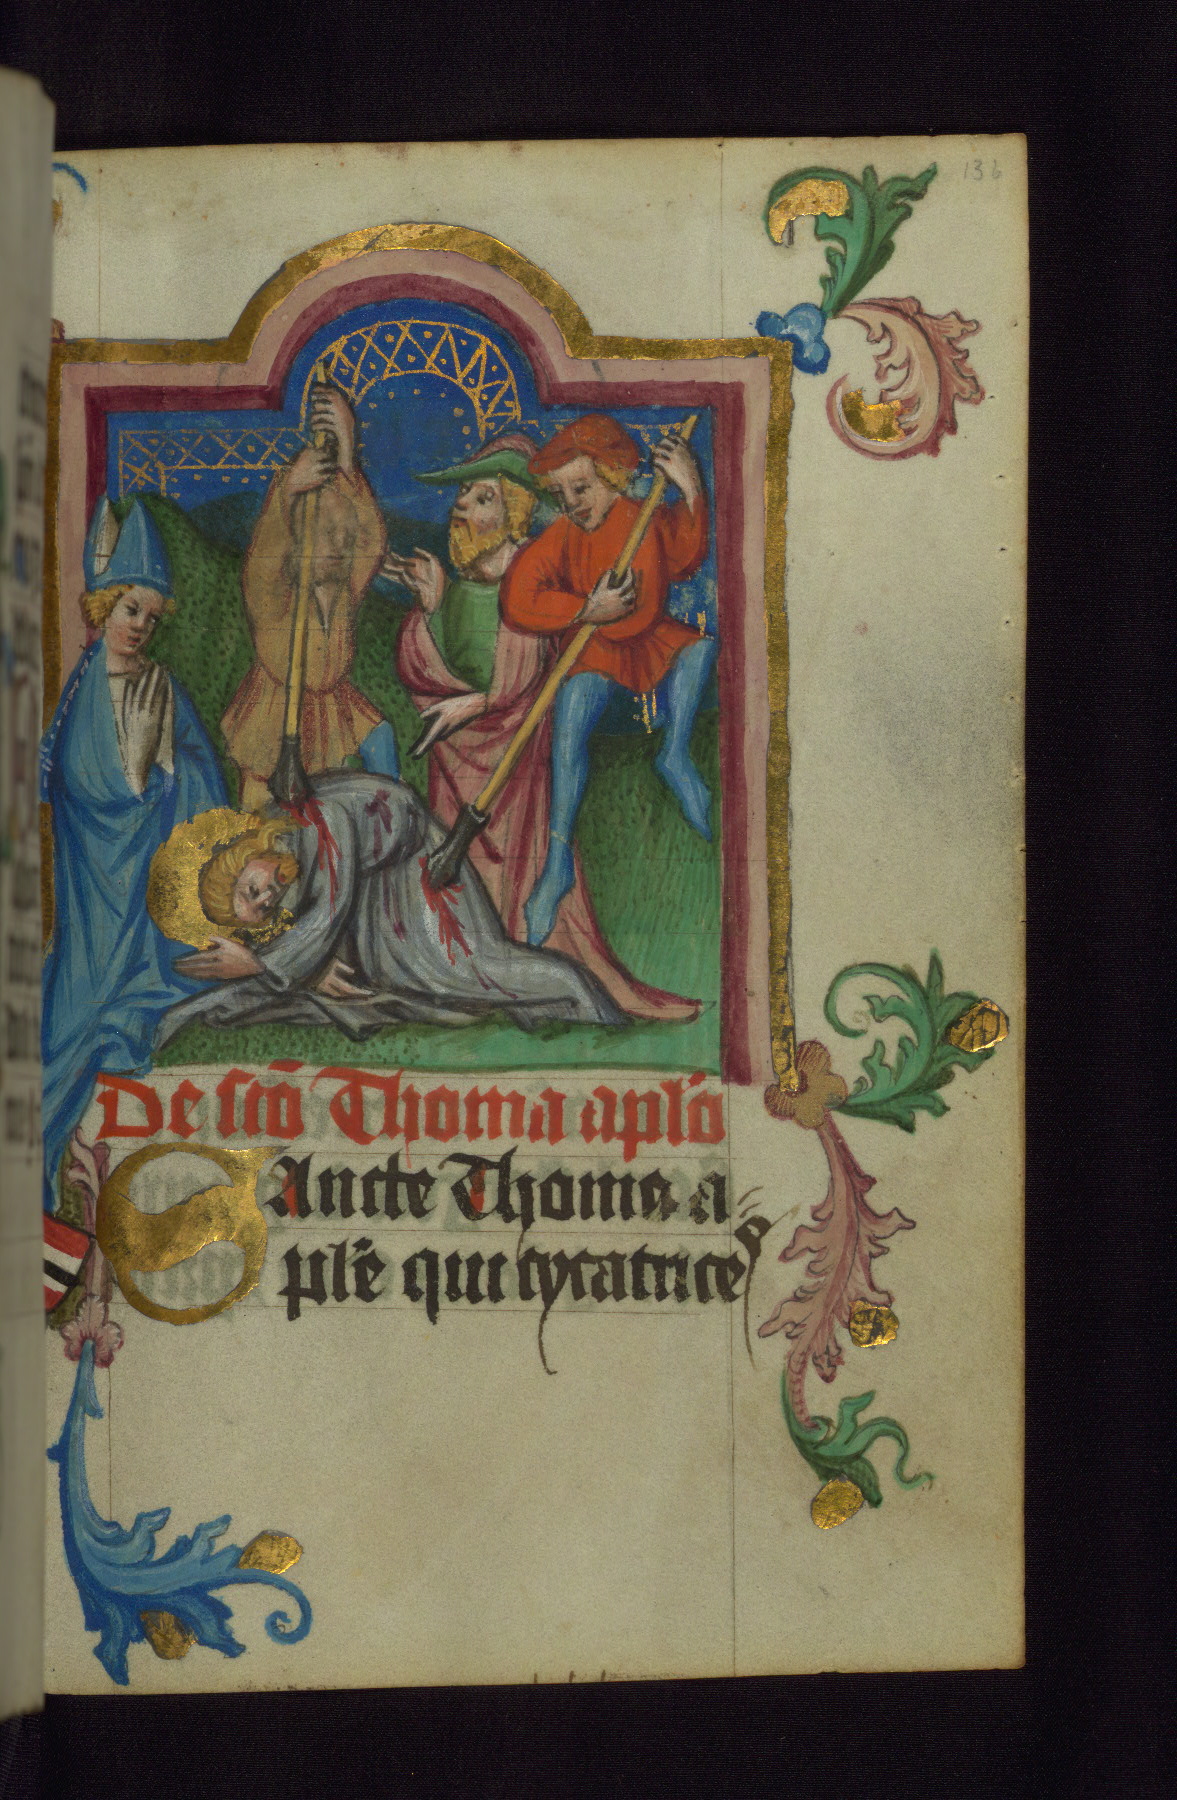 136
De sc̄o Thoma apl̄o
SAncte Thoma a-
pl̄e qui cycatrices